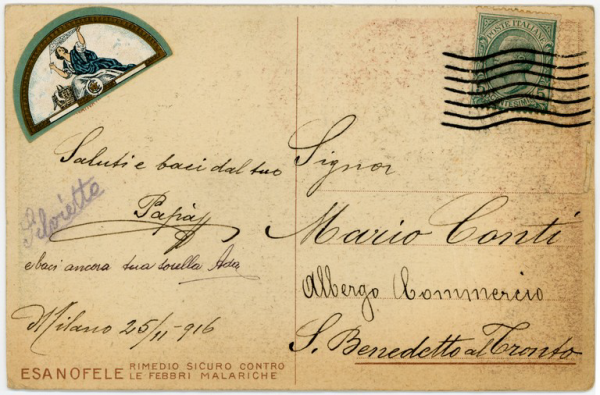 POSTE ITALIANE
Saluti e baci dal tuo
Papà
e baci ancora tua sorella Ada
Milano 25/11-916
ESANOFELE RIMEDIO SICURO CONTRO
LE FEBBRI MALARICHE
Signor
Mario Conti
Albergo Commercio
S. Benedetto al Tronto